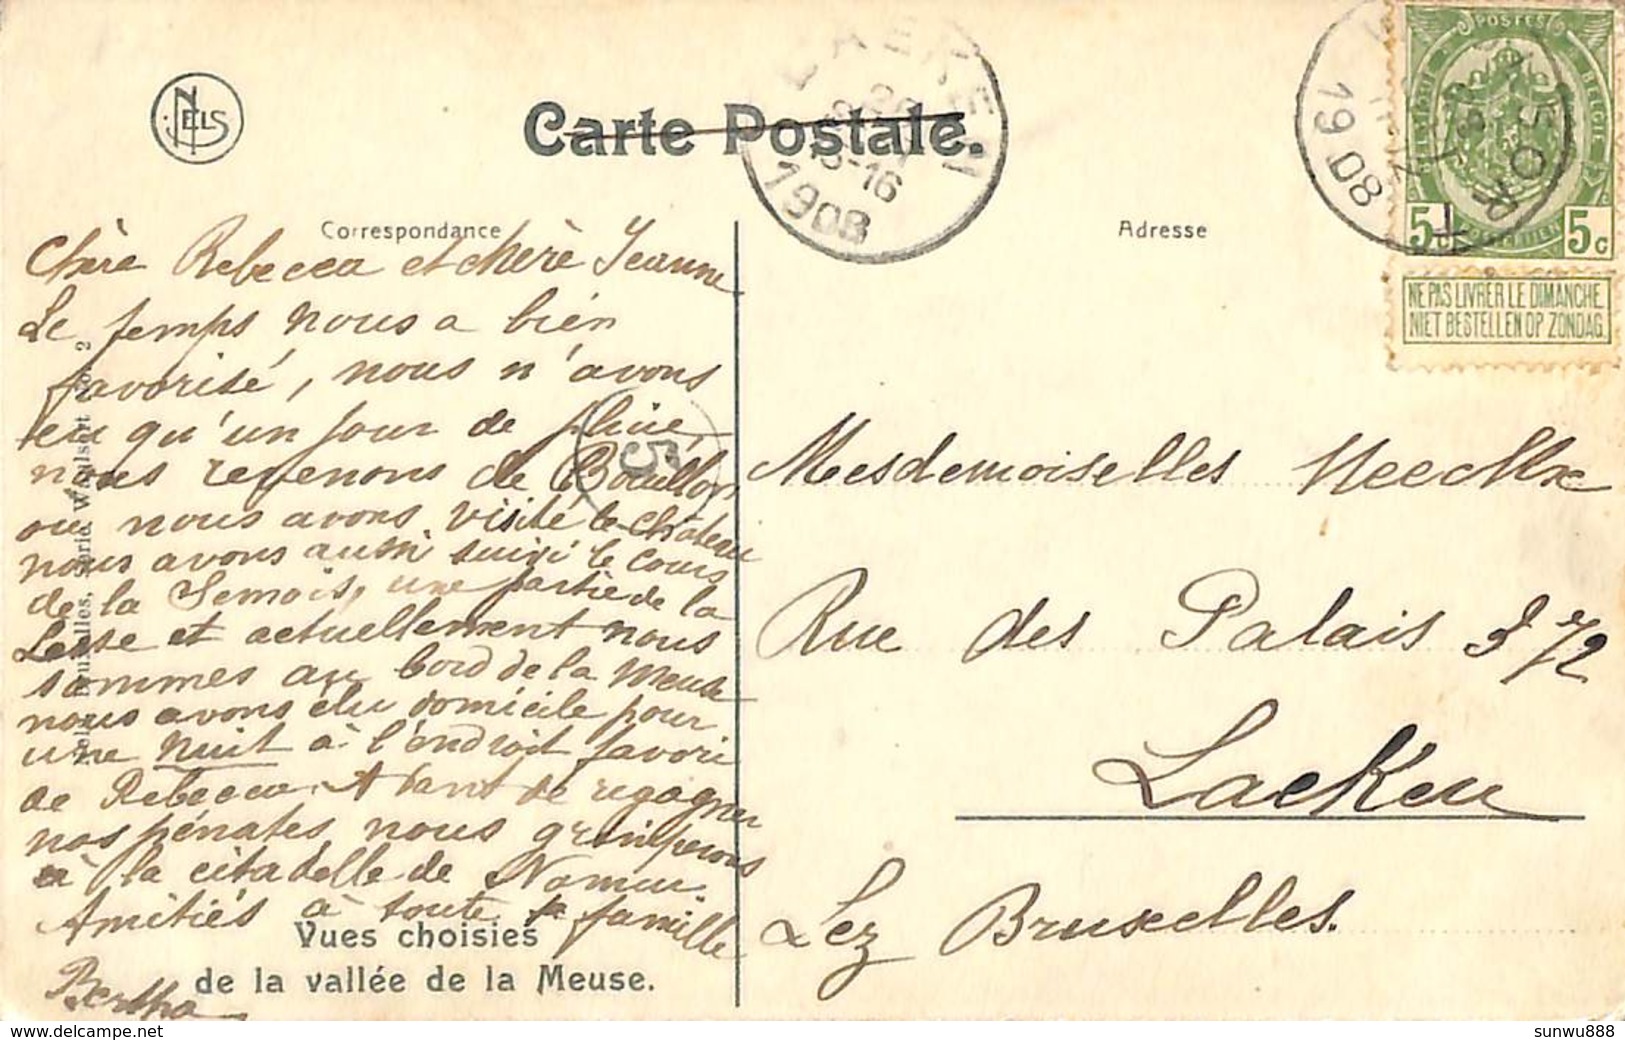 NELS
Carte Postale.
LAEKEN
1908
1908
POSTES
BELGIQUE
BELGIË
5c
5c
T
NE PAS LIVRER LE DIMANCHE.
NIET BESTELLEN OP ZONDAG.
Correspondance
Adresse
Chère Rebecca et chère Jeanne
Le temps nous a bien
favorisé, nous n'avons
eu qu'un jour de pluie,
nous revenons de Bouillon
où nous avons visité le château
nous avons aussi suivi le cours
de la Semois, une partie de la
Lesse et actuellement nous
sommes au bord de la Meuse
nous avons élu domicile pour
une nuit à l'endroit favori
de Rebecca. Avant de regagner
nos pénates nous grimperons
à la citadelle de Namur
Amitiés à toute la famille
Bertha
5
Mesdemoiselles
Rue des Palais 372
Laeken
Lez Bruxelles.
Vues choisies
de la vallée de la Meuse.
Nels, Bruxelles, Série Waulsort No. 2
sunwu888